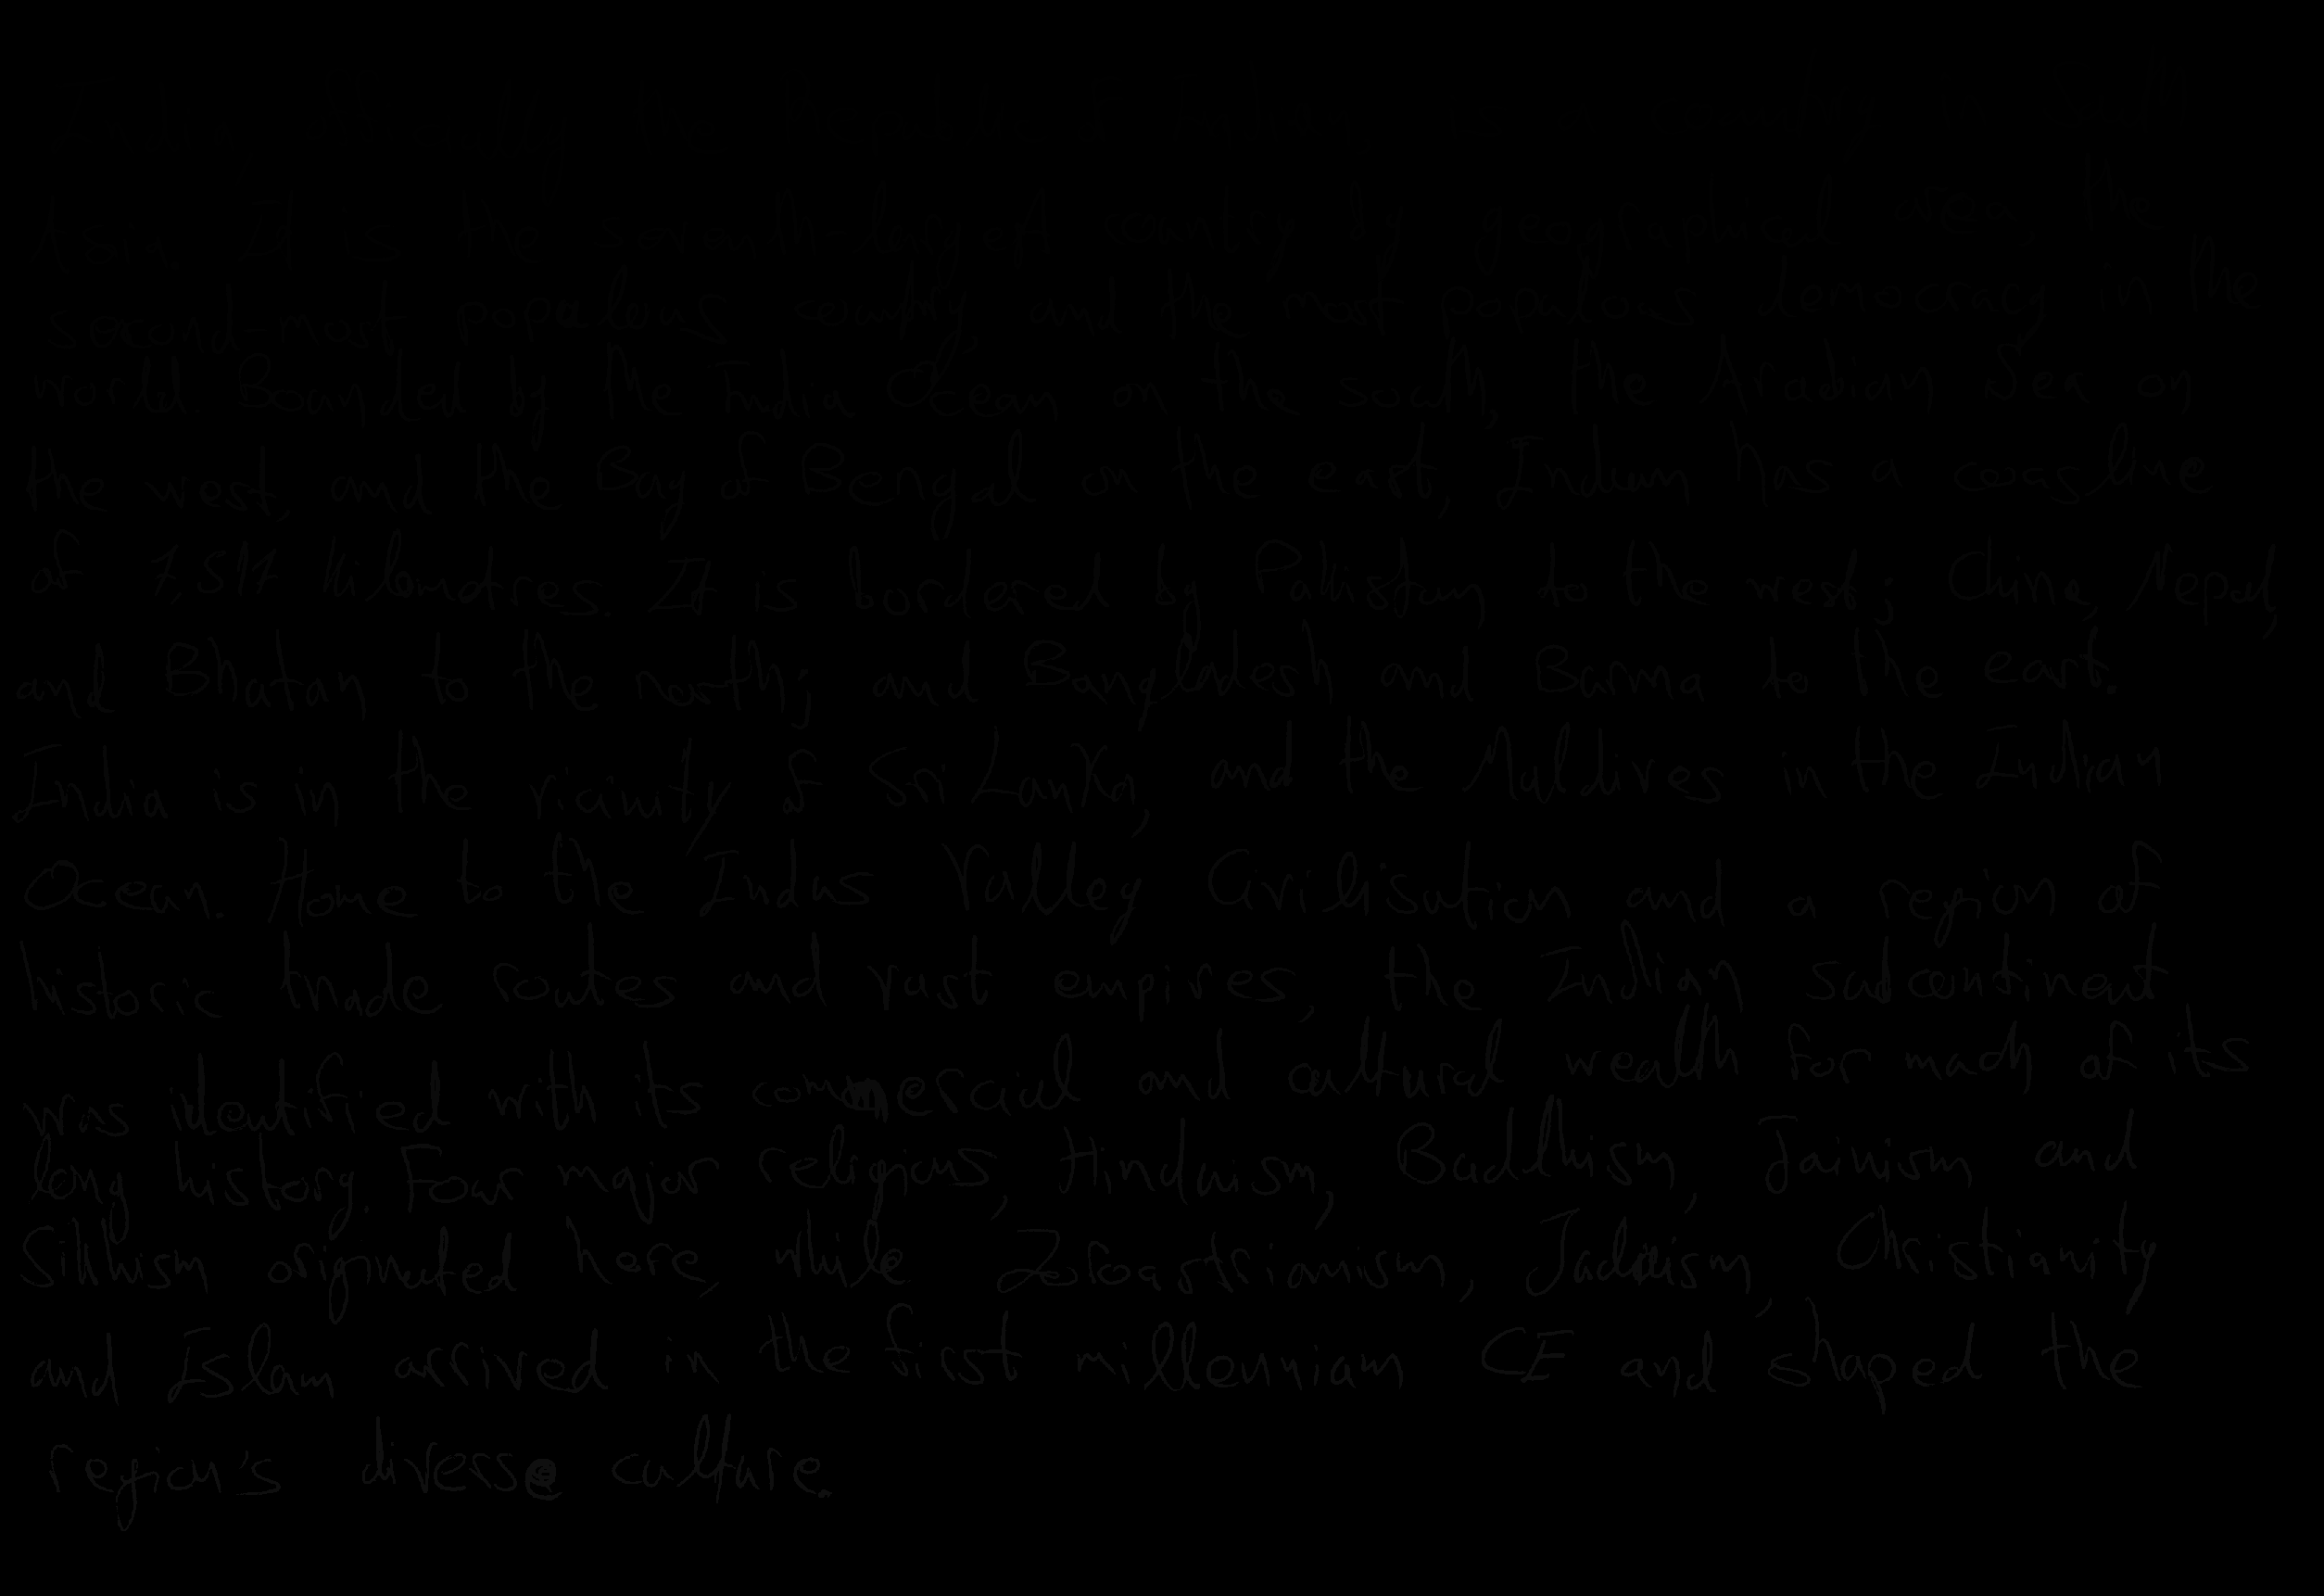 Asia. It is the seventh-largest country by geographical area, the
second-most populous country, and the most populous democracy in the
world. Bounded by the India Ocean on the south, the Arabian Sea on
the west, and the Bay of Bengal on the east, Indian has a coasline
of 7,517 kilometres. It is bordered by Pakistan to the west; China, Nepal,
and Bhutan to the north; and Bangladesh and Burma to the east.
India is in the vicinity of Sri Lanka, and the Maldives in the Indian
Ocean. Home to the Indus Valley Civilisation and a region of
historic trade routes and vast empires, the Indian subcontinent
was identified with its commercial and cultural wealth for much of its
long history. Four major religions, Hinduism, Buddhism, Jainism and
Sikhism originated here, while Zoroastrianism, Judaism, Christianity
and Islam arrived in the first millennium CE and shaped the
region's diverse culture.